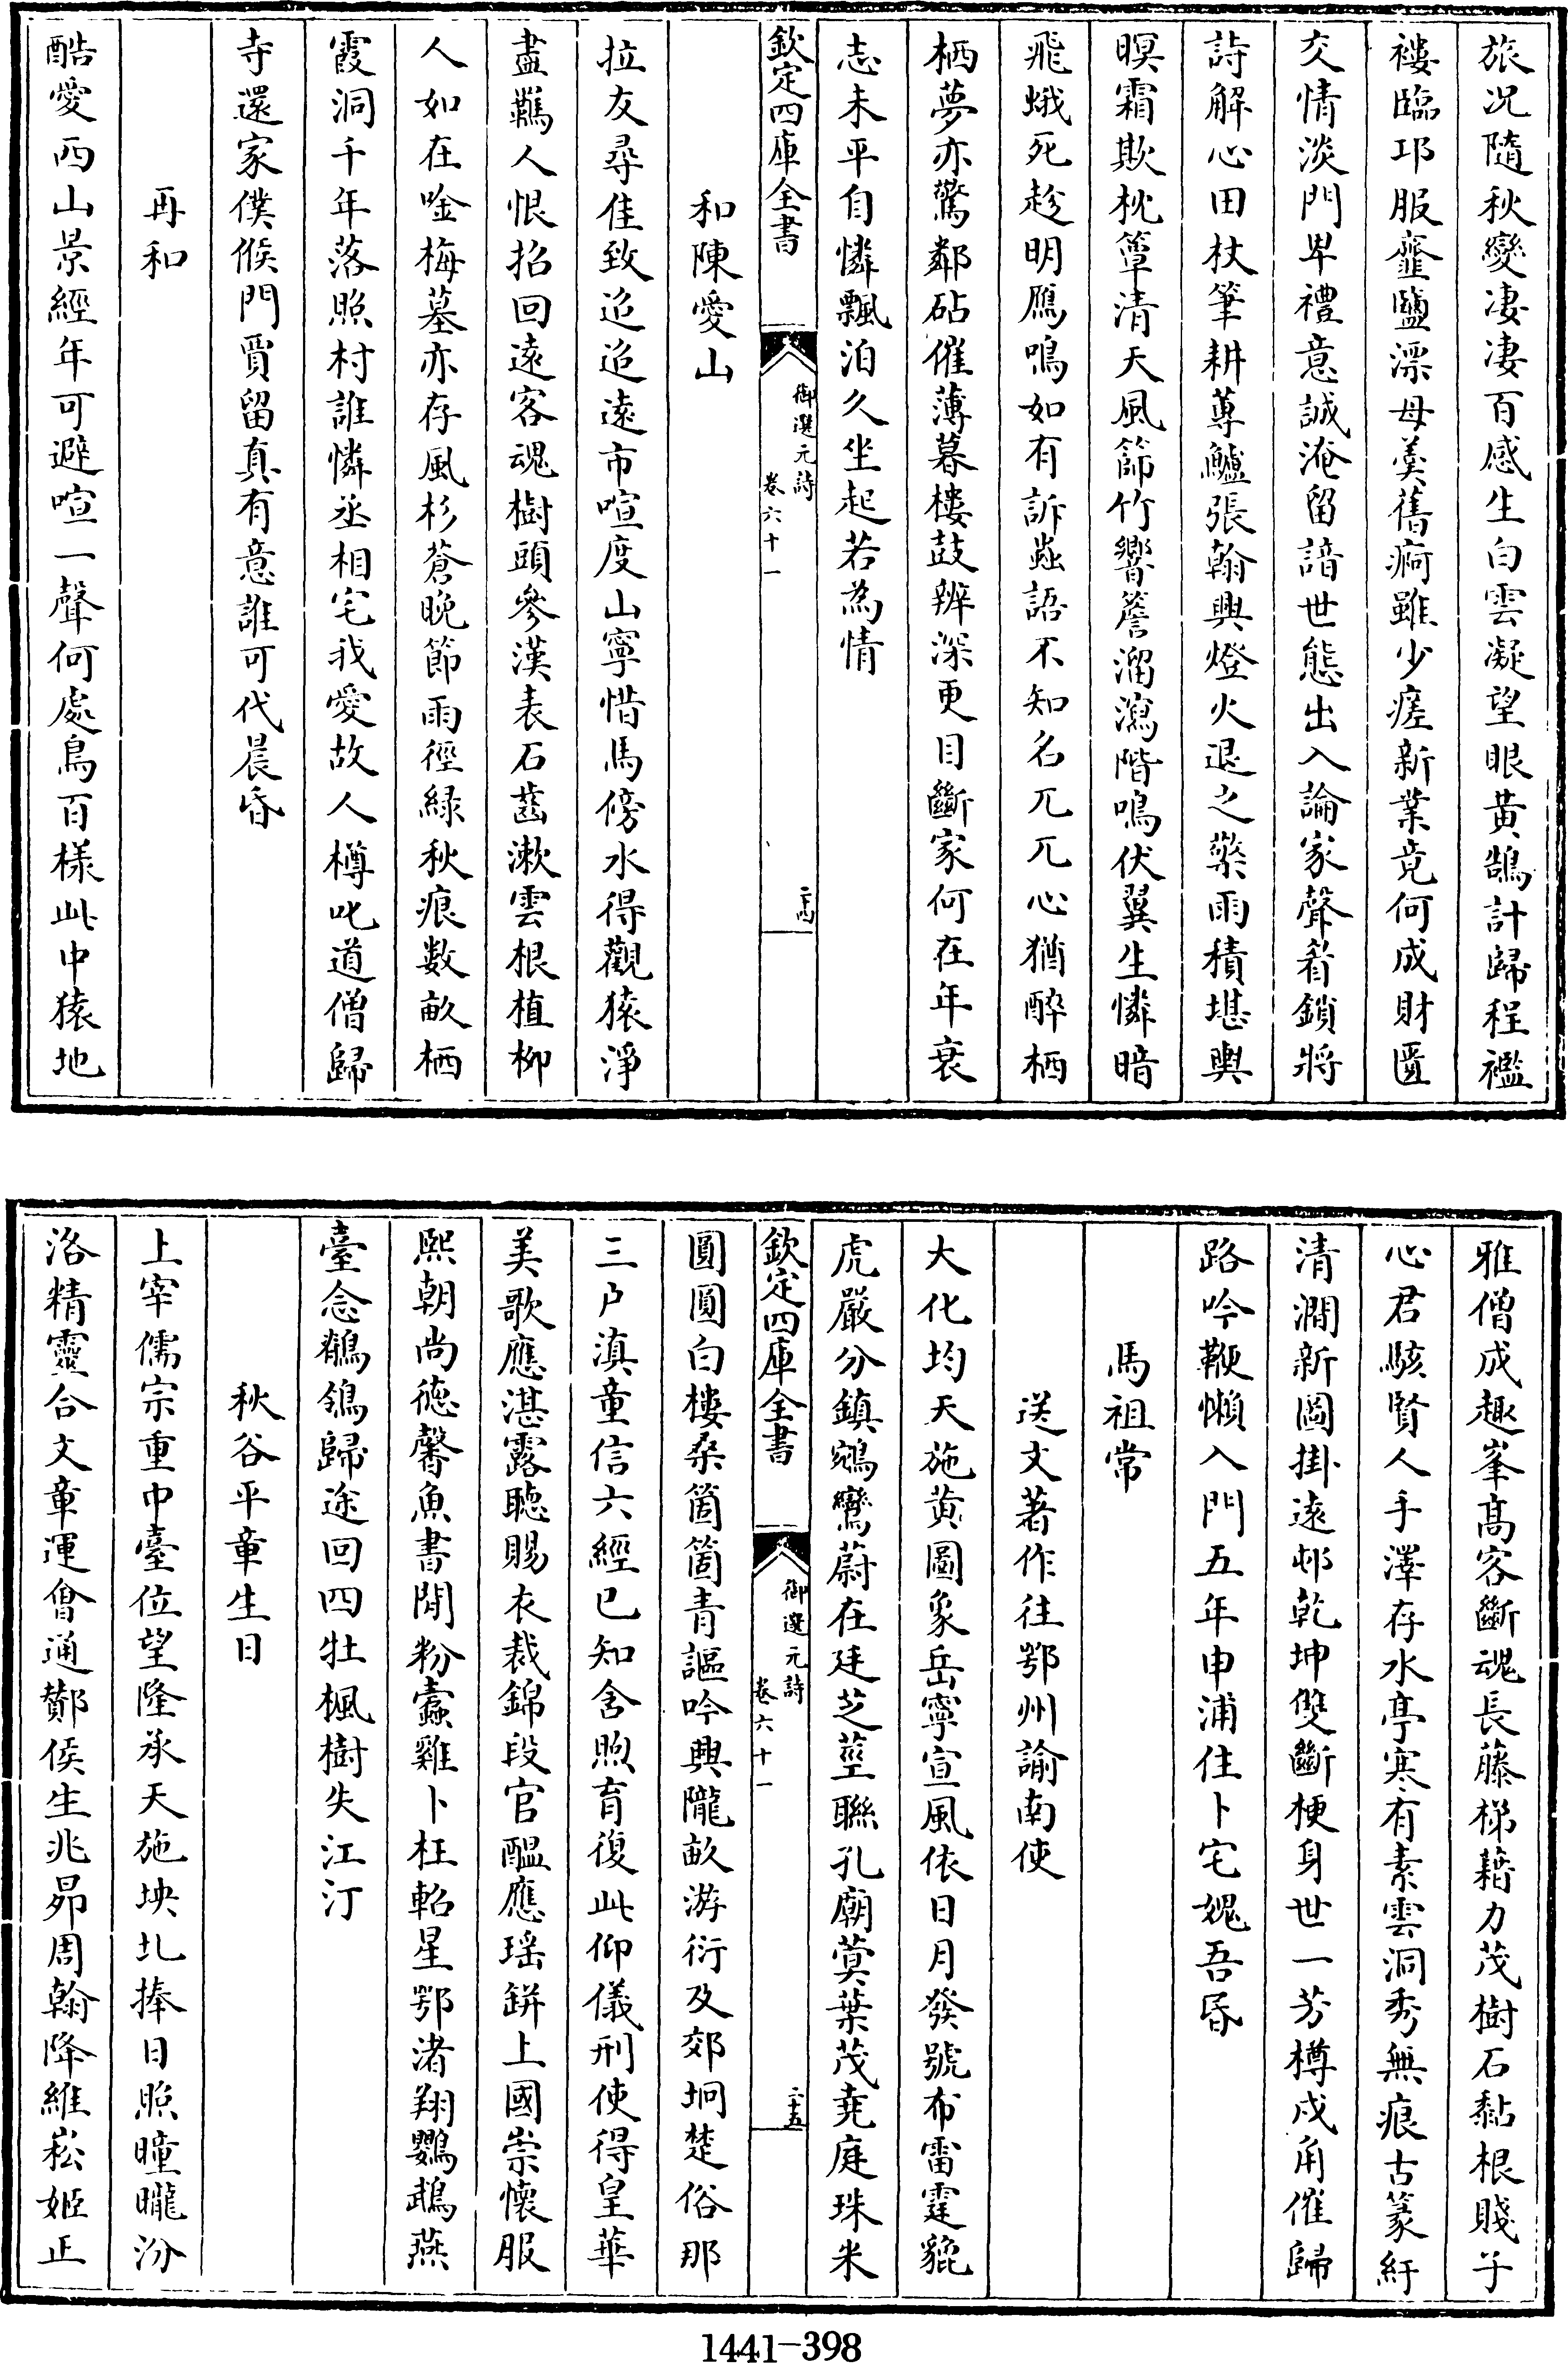 旅况隨秋變凄凄百感生白雲凝望眼黄鵠計歸程襤
褸臨邛服虀鹽漂母羮舊痾雖少瘥新業竟何成財匱
交情淡門卑禮意誠淹留諳世態出入論家聲肴鎖將
詩解心田杖筆耕蓴鱸張翰興燈火退之檠雨積堪輿
暝霜欺枕簟清天風篩竹響簷溜瀉階鳴伏翼生憐暗
飛蛾死趁明鴈鳴如有訴蛩語不知名兀兀心猶醉栖
栖夢亦驚鄰砧催薄暮樓鼓辨深更目斷家何在年衰
志未平自憐飄泊久坐起若為情
欽定四庫全書
御選元詩
卷六十一
二十四
和陳愛山
拉友尋佳致迢迢遠市喧度山寧惜馬傍水得觀猿淨
盡羈人恨招回遠客魂樹頭參漢表石齒漱雲根植柳
人如在唫梅墓亦存風杉蒼晚節雨徑緑秋痕數畝栖
霞洞千年落照村誰憐丞相宅我愛故人樽叱道僧歸
寺還家僕候門賈留真有意誰可代晨昏
再和
酷愛西山景經年可避喧一聲何處鳥百樣此中猿地
雅僧成趣峯髙客斷魂長藤梯藉力茂樹石黏根賤子
心君駭賢人手澤存水亭寒有素雲洞秀無痕古篆紆
清澗新圖掛遠邨乾坤雙斷梗身世一芳樽戍角催歸
路吟鞭懶入門五年申浦住卜宅媿吾昏
馬祖常
送文著作往鄂州諭南使
大化均天施黄圖象岳寧宣風依日月發號布雷霆貔
虎嚴分鎮鵷鸞蔚在廷芝莖聯孔廟蓂葉茂堯庭珠米
欽定四庫全書
御選元詩
卷六十一
二十五
圓圓白樓桑箇箇青謳吟興隴畝游衍及郊坰楚俗那
三户滇童信六經已知含煦育復此仰儀刑使得皇華
美歌應湛露聴賜衣裁錦段官醖應瑶缾上國崇懷服
熙朝尚徳馨魚書閒粉蠧雞卜枉軺星鄂渚翔鸚鵡燕
臺念鶺鴒歸途回四牡楓樹失江汀
秋谷平章生日
上宰儒宗重中臺位望隆承天施坱圠捧日照曈曨汾
洛精靈合文章運會通酇侯生兆昴周翰降維崧姬正
1441-398